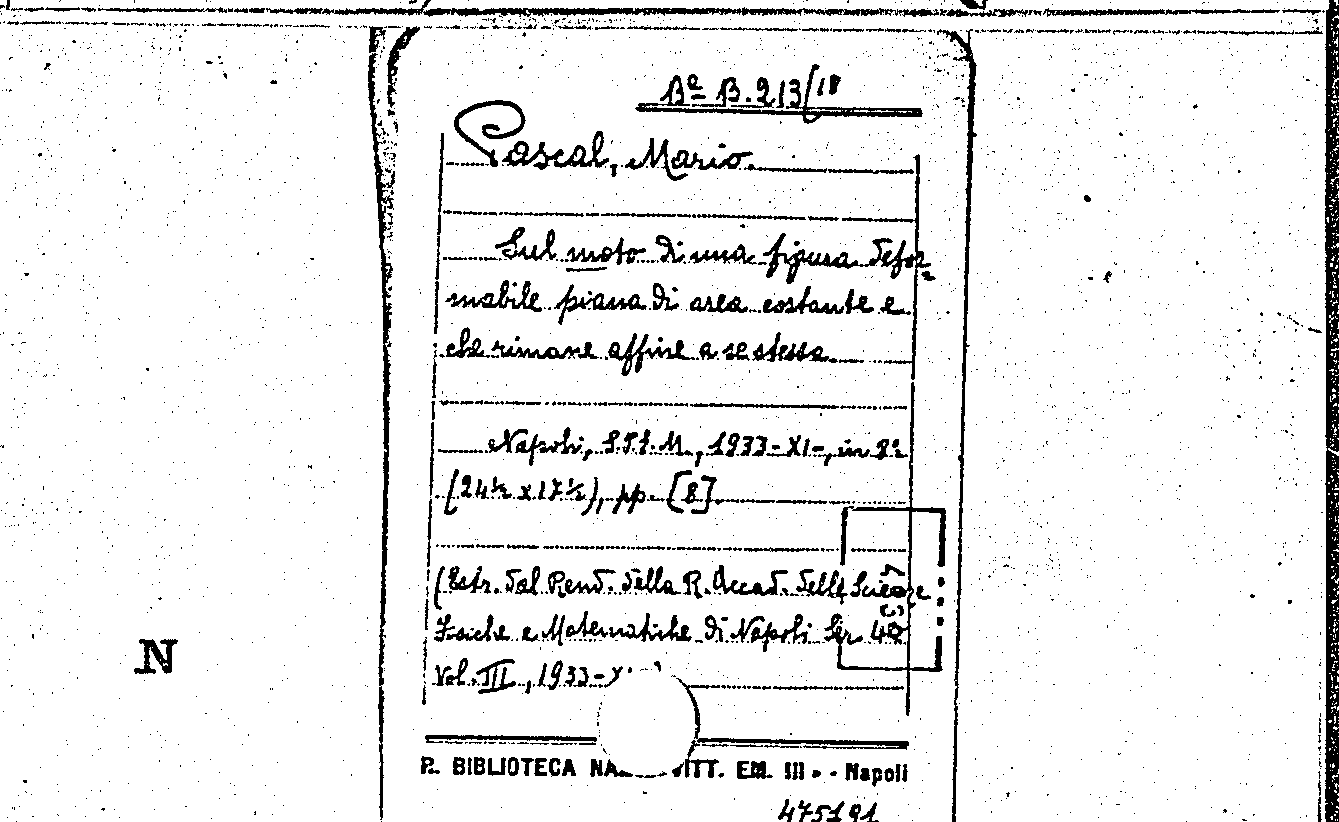 Bª B.213/18
Pascal, Mario.
Sul moto di una figura defor=
mabile piana di area costante e
che rimane affine a se stessa.
Napoli, S.I.E.M., 1933-XI-, in 8º
(24½ x 17½), pp. [8].
(Estr. dal Rend. della R. Accad. delle Scienze
Fisiche e Matematiche di Napoli Ser. 4ª
Vol. III, 1933-X
R. BIBLIOTECA NA VITT. EM. III - Napoli
475191
N